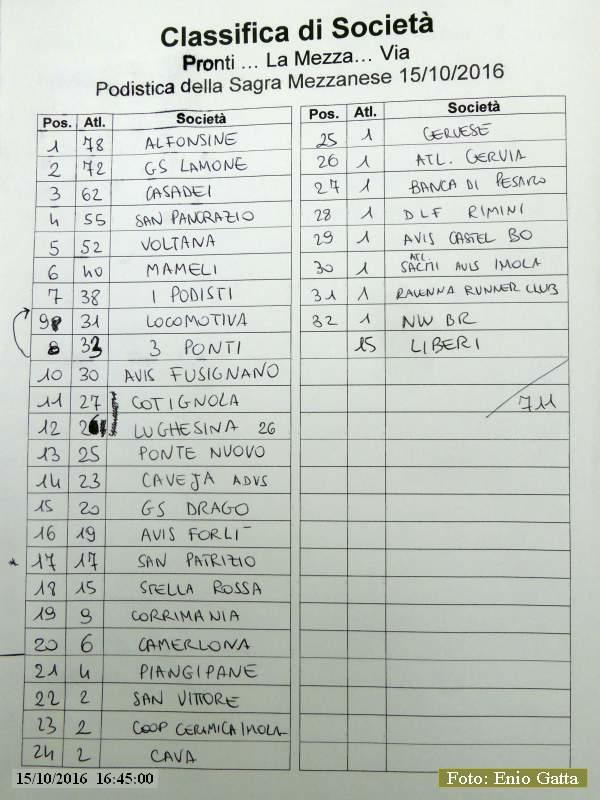 Classifica di Società
Pronti ... La Mezza... Via
Podistica della Sagra Mezzanese 15/10/2016
Pos. Atl. Società
1 78 ALFONSINE
2 72 GS LAMONE
3 62 CASADEI
4 55 SAN PANCRAZIO
5 52 VOLTANA
6 40 MAMELI
7 38 I PODISTI
9 31 LOCOMOTIVA
8 33 3 PONTI
10 30 AVIS FUSIGNANO
11 27 COTIGNOLA
12 26 LUGHESINA 26
13 25 PONTE NUOVO
14 23 CAVEJA ADVS
15 20 GS DRAGO
16 19 AVIS FORLI
* 17 17 SAN PATRIZIO
18 15 STELLA ROSSA
19 9 CORRIMANIA
20 6 CAMERLONA
21 4 PIANGIPANE
22 2 SAN VITTORE
23 2 COOP CERAMICA IMOLA
24 2 CAVA
Pos. Atl. Società
25 1 CERVESE
26 1 ATL. CERVIA
27 1 BANCA DI PESARO
28 1 DLF RIMINI
29 1 AVIS CASTEL BO
30 1 ATL SACMI AVIS IMOLA
31 1 RAVENNA RUNNER CLUB
32 1 NW BR
15 LIBERI
711
15/10/2016 16:45:00
Foto: Enio Gatta